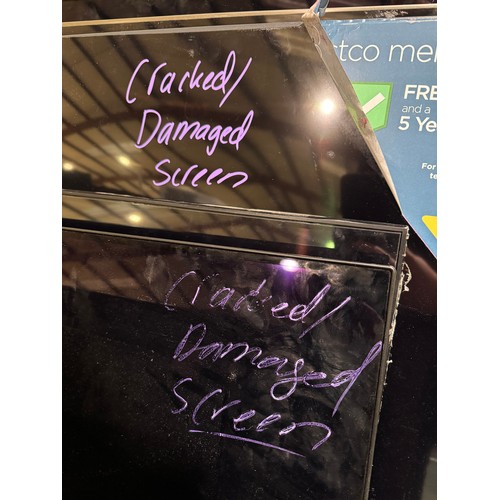 Cracked/
Damaged
Screen
stco mer
FRE
and a
5 Ye
For
te
Cracked/
Damaged
Screen